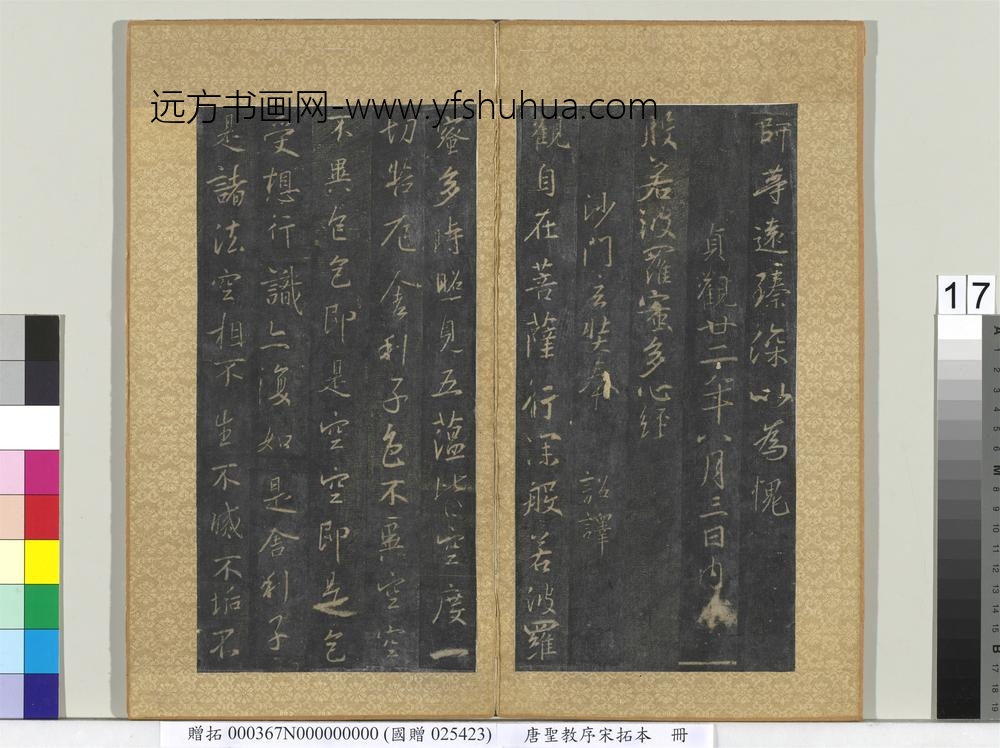 远方书画网-www.yfshuhua.com
師等遠臻深以為愧
貞觀廿二年八月三日內
般若波羅蜜多心經
沙門玄奘奉 詔譯
觀自在菩薩行深般若波羅
蜜多時照見五蘊皆空度一
切苦厄舍利子色不異空空
不異色色即是空空即是色
受想行識亦復如是舍利子
是諸法空相不生不滅不垢不
17
贈拓 000367N000000000 (國贈 025423) 唐聖教序宋拓本 冊